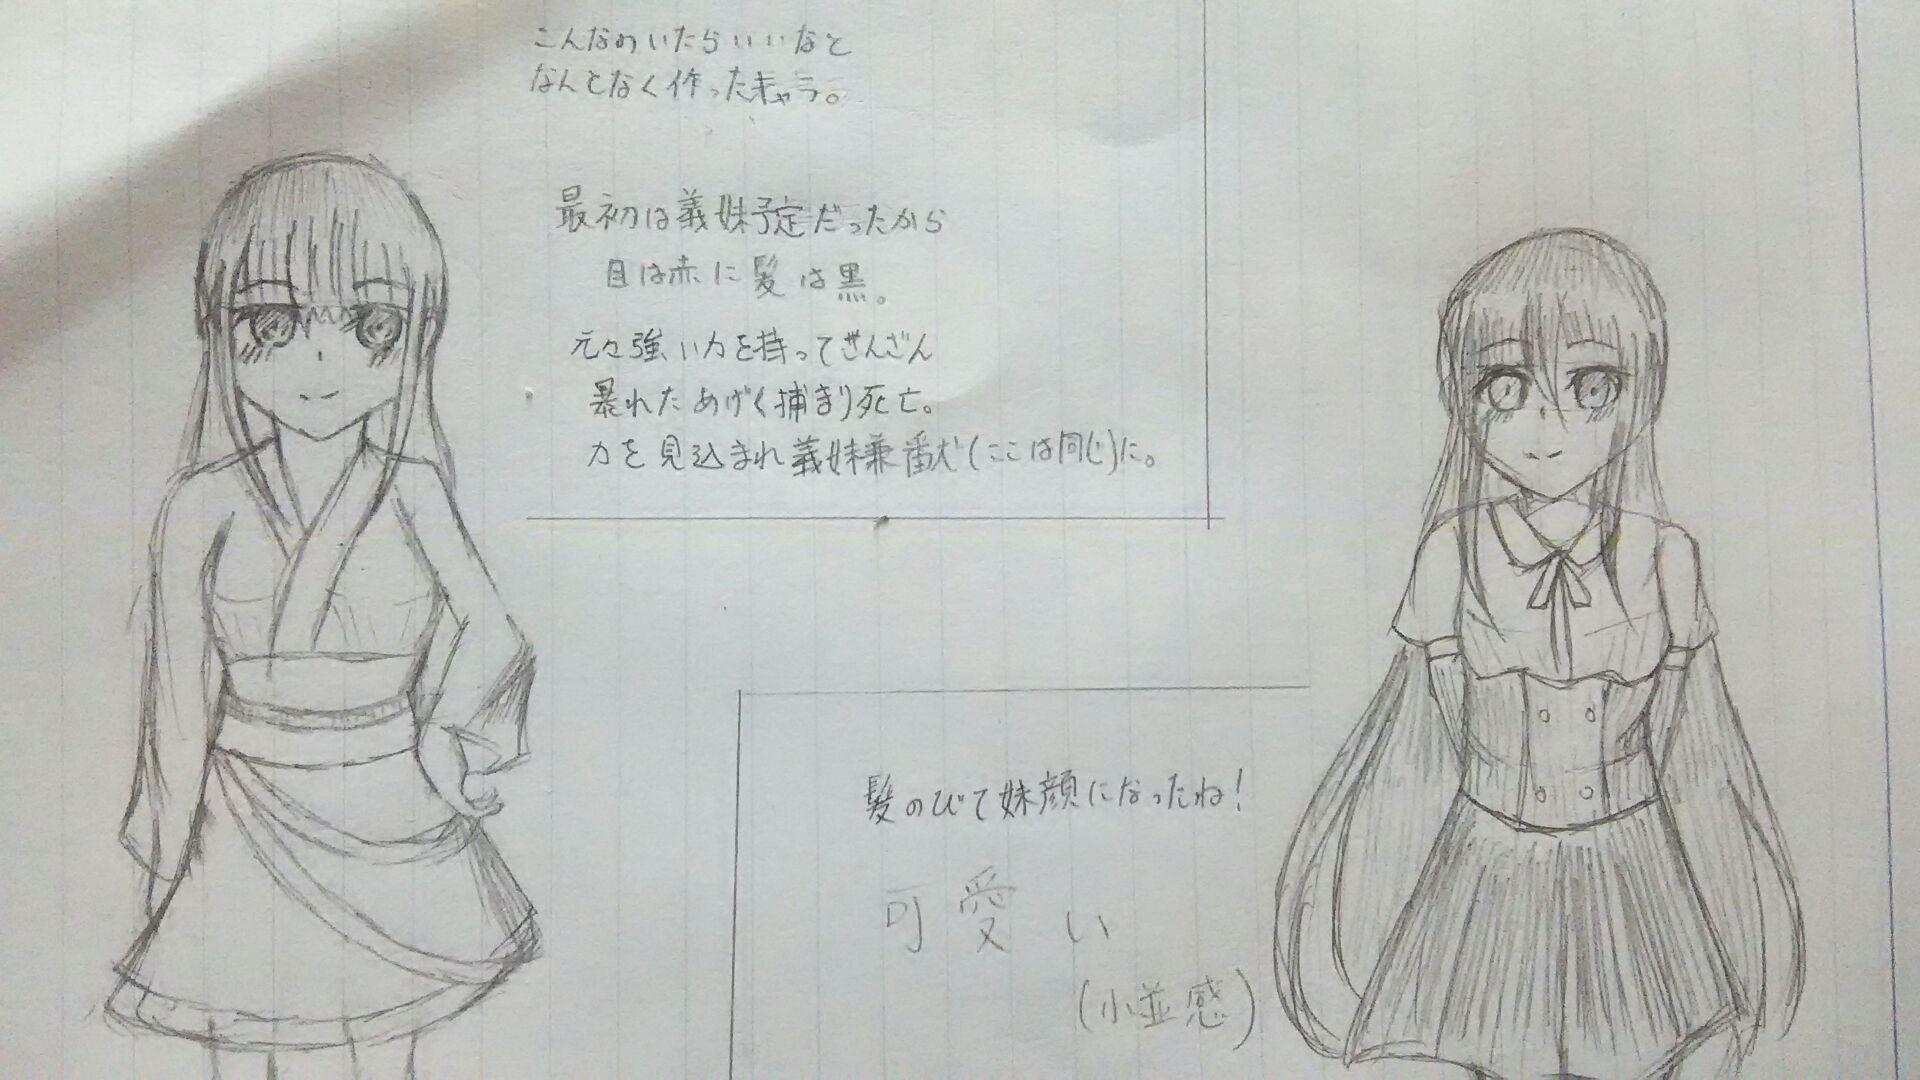 こんなのいたらいいなと
なんとなく作ったキャラ。
最初は義妹予定だったから
目は赤に髪は黒。
元々強い力を持ってさんざん
暴れたあげく捕まり死亡。
力を見込まれ義妹兼番犬(ここは同じ)に。
髪のびて妹顔になったね!
可愛い
(小並感)